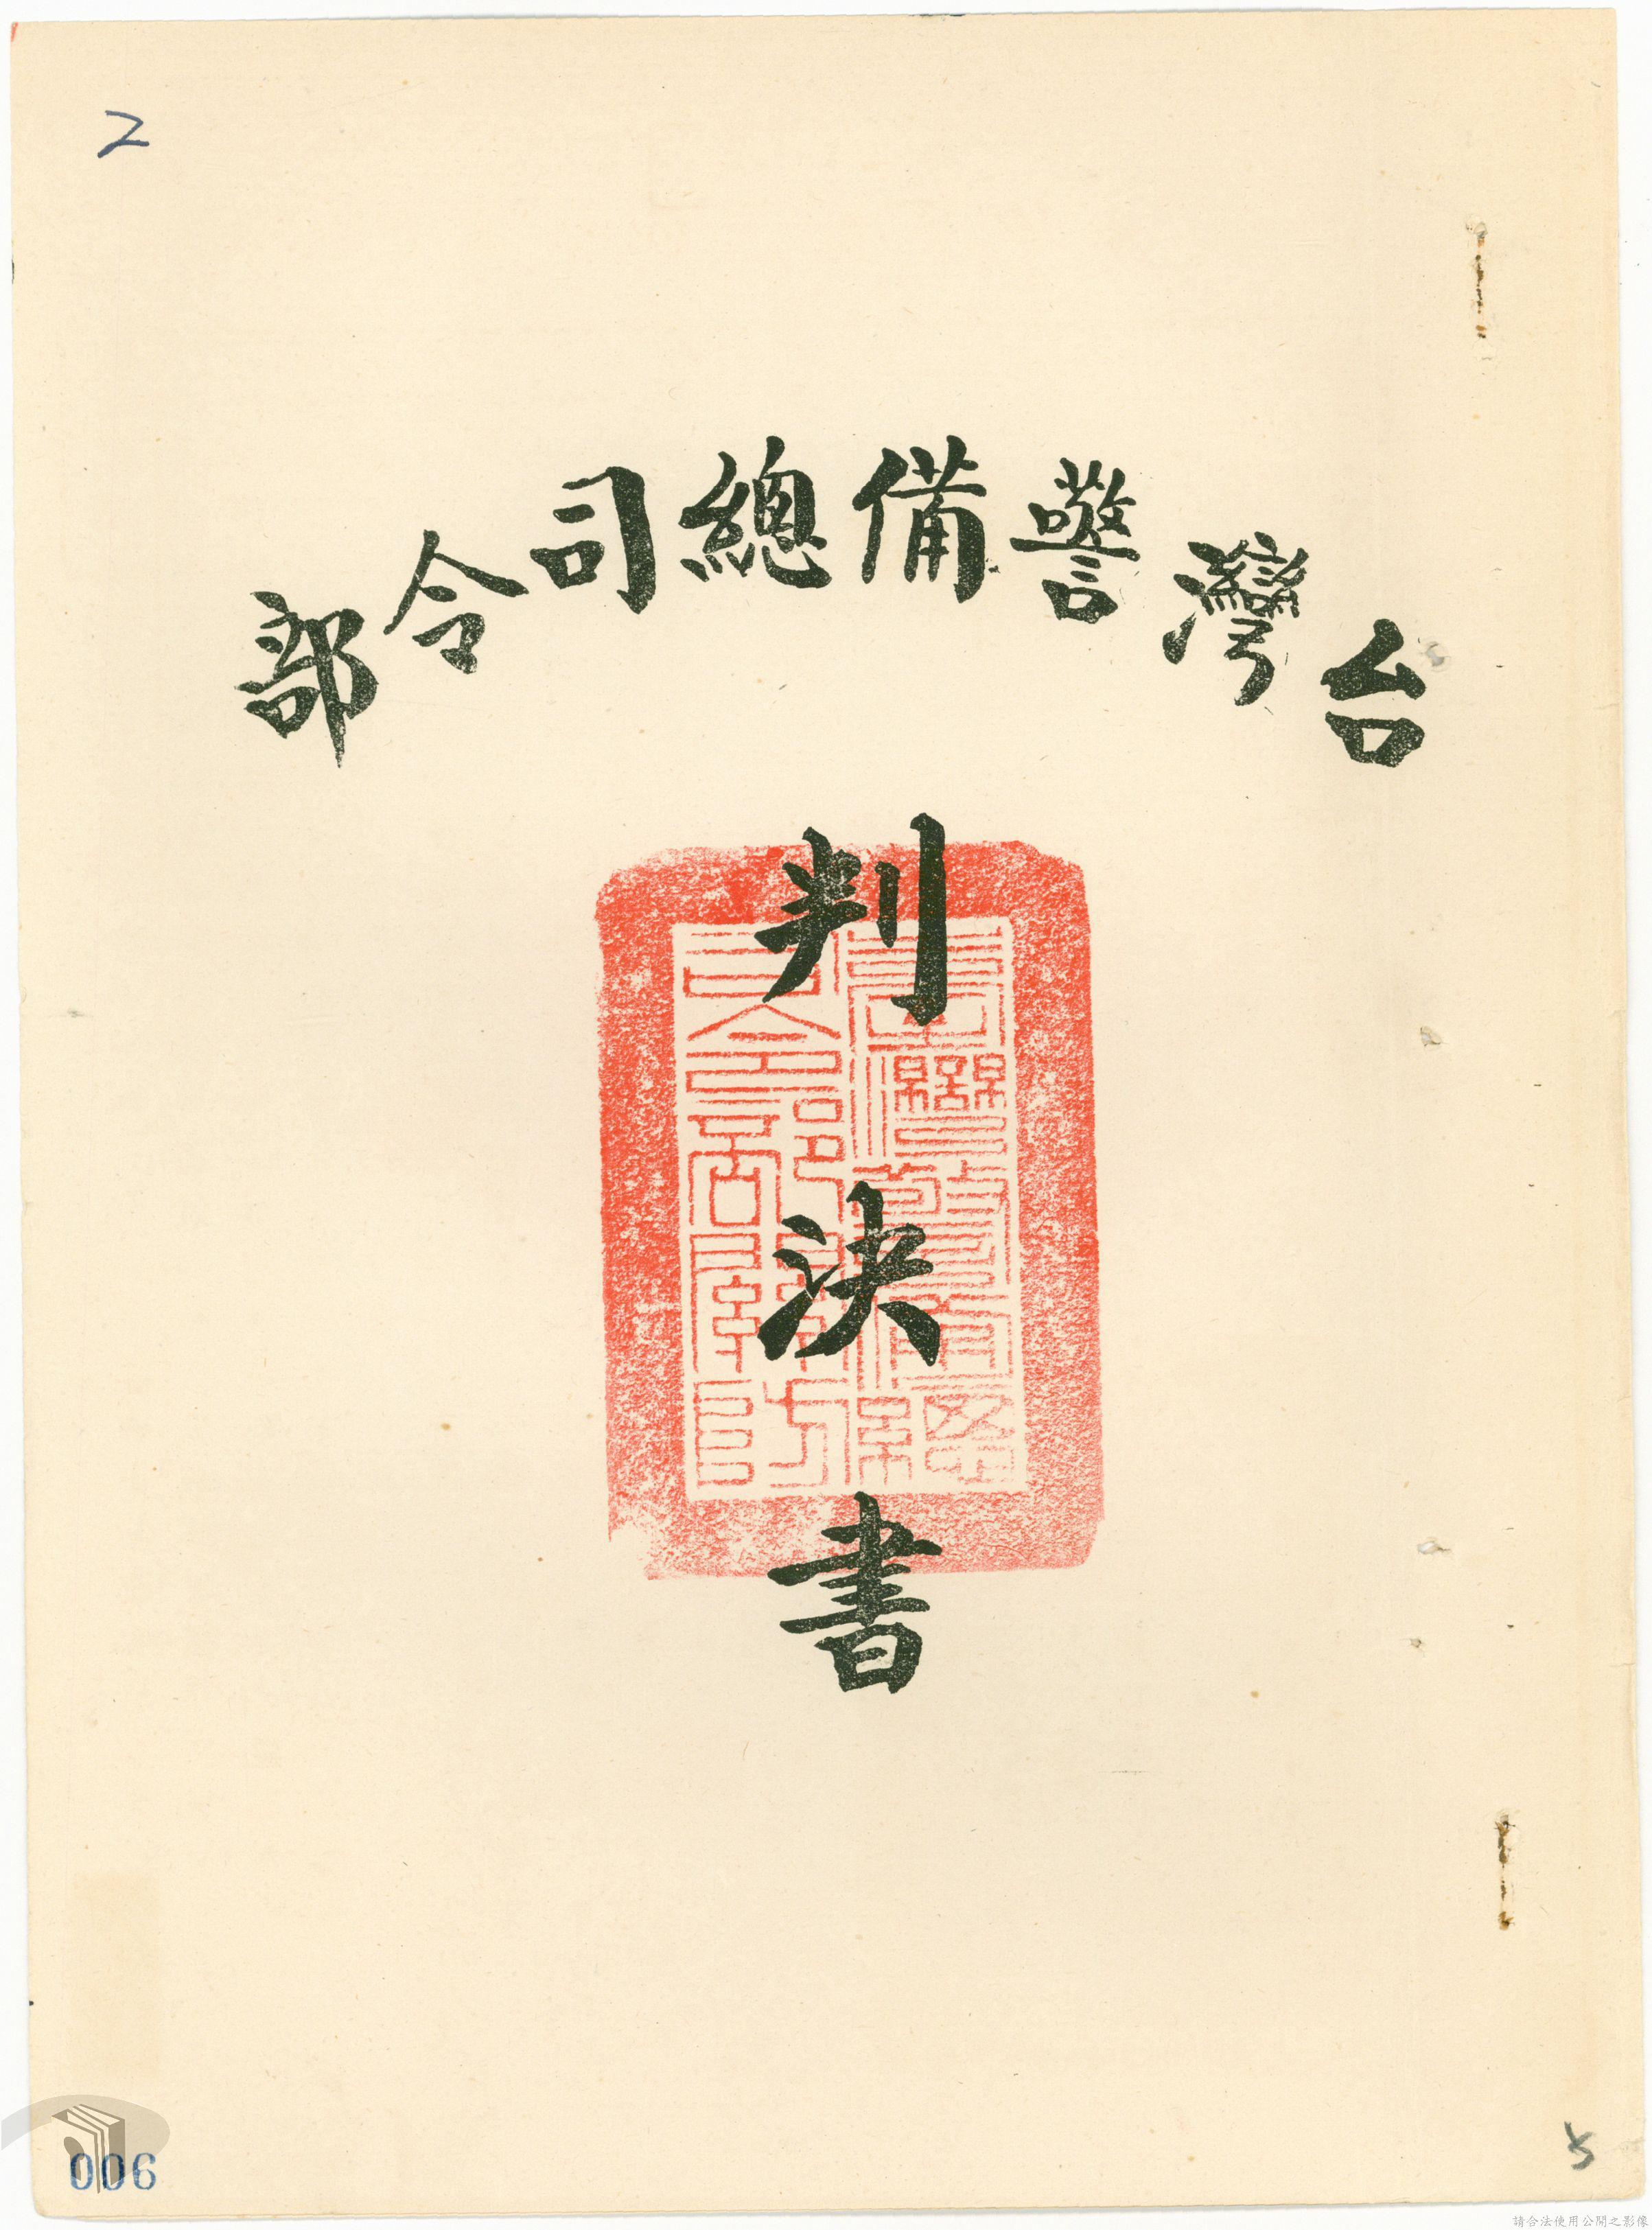 2
台灣警備總司令部
判決書
臺灣警備總
司令部關防
006
5
請合法使用公開之影像